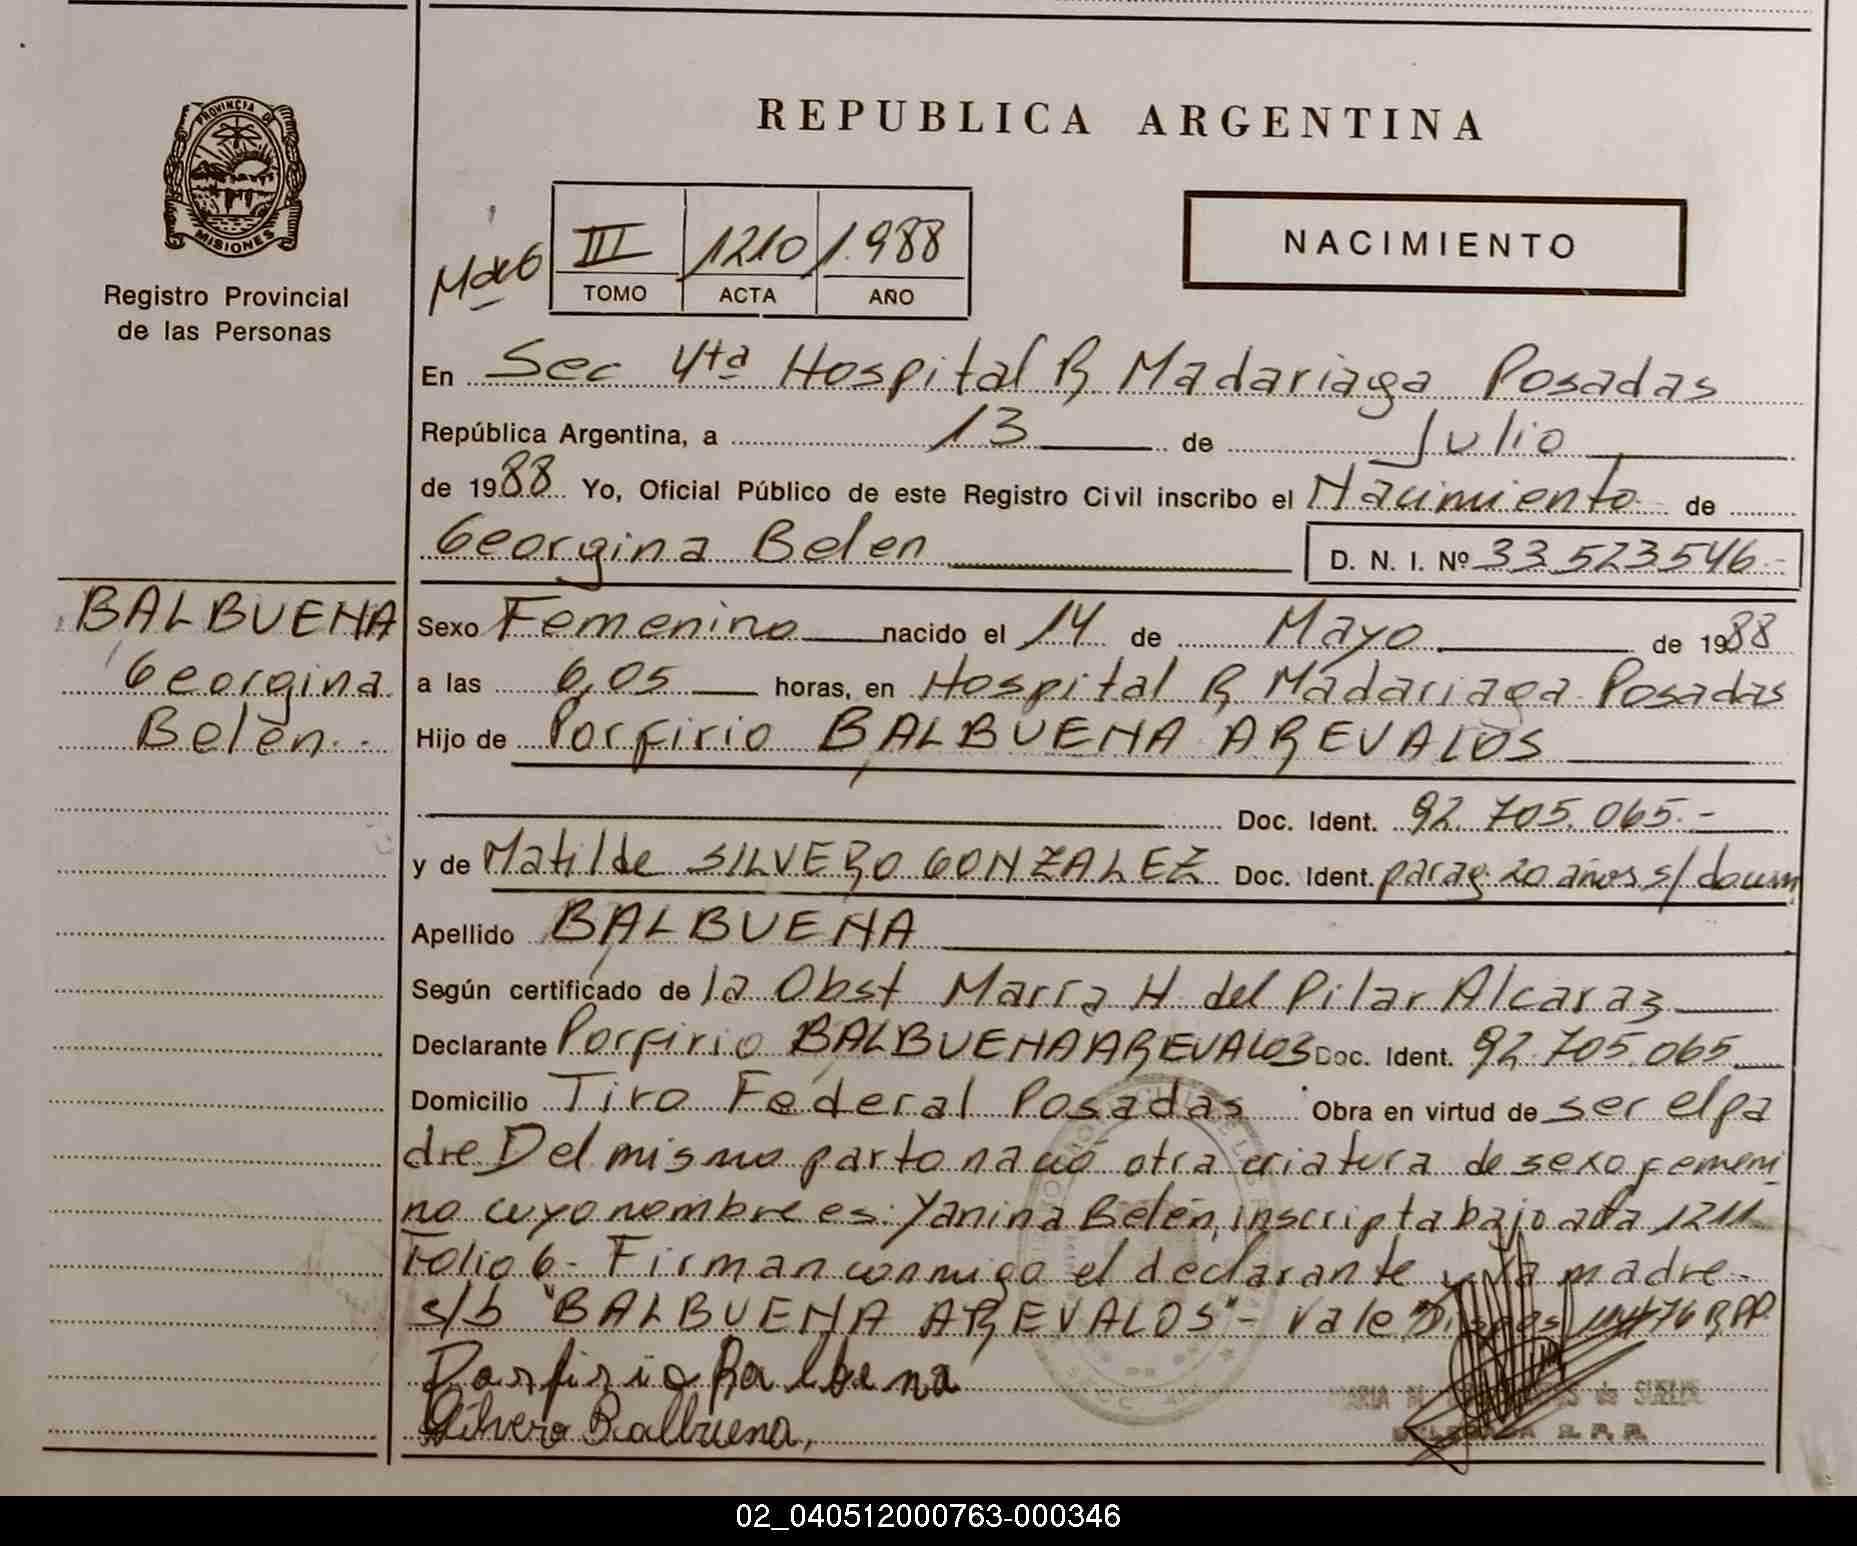 REPUBLICA ARGENTINA
PROVINCIA DE
MISIONES
Registro Provincial
de las Personas
III 1210 1.988
TOMO ACTA AÑO
NACIMIENTO
En Sec 4ta Hospital R Madariaga Posadas
República Argentina, a 13 de Julio
de 1988 Yo, Oficial Público de este Registro Civil inscribo el Nacimiento de
Georgina Belen D. N. I. Nº 33.523546-
BALBUENA
Georgina
Belén
Sexo Femenino nacido el 14 de Mayo de 1988
a las 6,05 horas, en Hospital R Madariaga Posadas
Hijo de Porfirio BALBUENA AREVALOS
Doc. Ident. 92.705.065.-
y de Matilde SILVERO GONZALEZ Doc. Ident. parag. 20 años s/ docum
Apellido BALBUENA
Según certificado de la Obst María H del Pilar Alcaraz
Declarante Porfirio BALBUENA AREVALOS Doc. Ident. 92.705.065
Domicilio Tiro Federal Posadas Obra en virtud de ser el pa
dre Del mismo parto nació otra criatura de sexo femeni
no cuyo nombre es: Yanina Belén, inscripta bajo acta 1211
Folio 6- Firman conmigo el declarante y la madre-
s/b "BALBUENA AREVALOS"- Vale Dispos
Porfirio Balbuena
Silvero Balbuena,
02_040512000763-000346